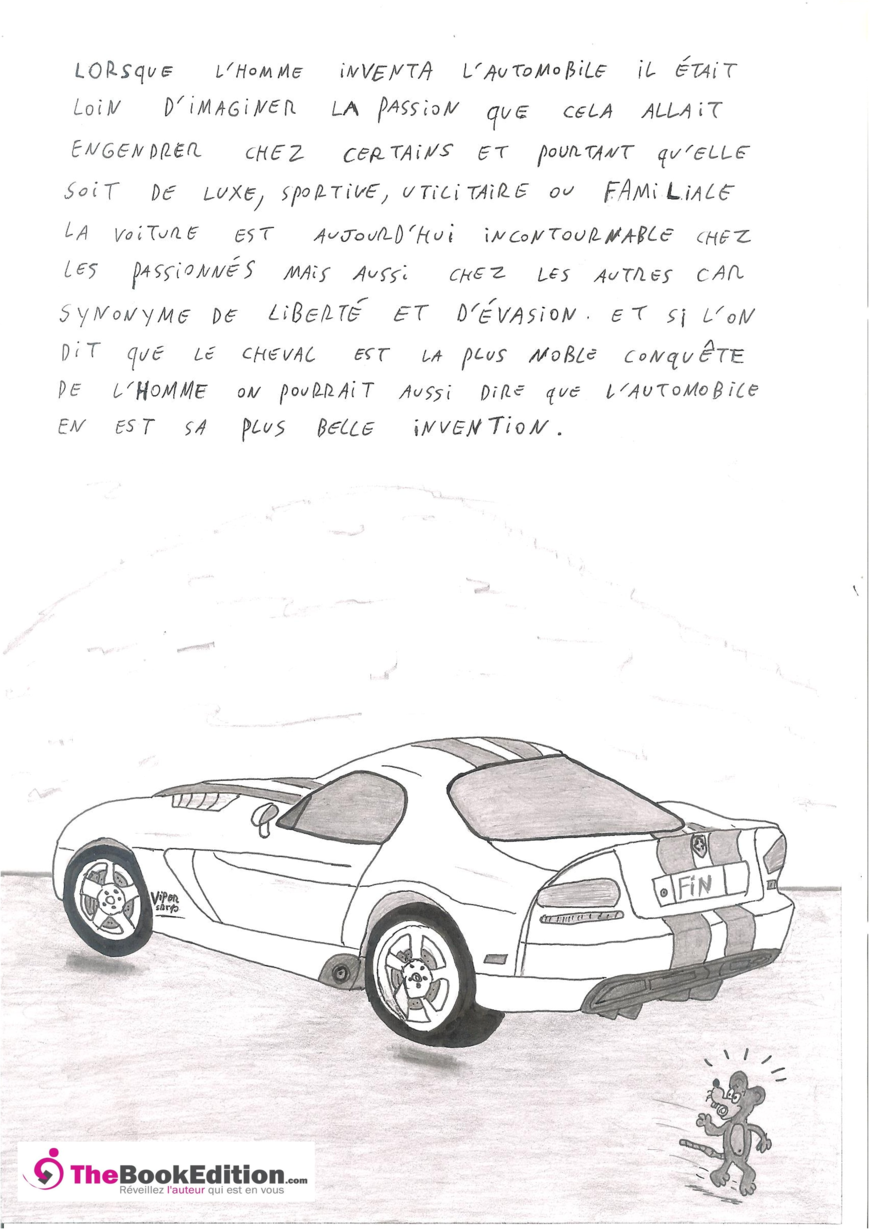 LORSQUE L'HOMME INVENTA L'AUTOMOBILE IL ÉTAIT
LOIN D'IMAGINER LA PASSION QUE CELA ALLAIT
ENGENDRER CHEZ CERTAINS ET POURTANT QU'ELLE
SOIT DE LUXE, SPORTIVE, UTILITAIRE OU FAMILIALE
LA VOITURE EST AUJOURD'HUI INCONTOURNABLE CHEZ
LES PASSIONNÉS MAIS AUSSI CHEZ LES AUTRES CAR
SYNONYME DE LIBERTÉ ET D'ÉVASION. ET SI L'ON
DIT QUE LE CHEVAL EST LA PLUS NOBLE CONQUÊTE
DE L'HOMME ON POURRAIT AUSSI DIRE QUE L'AUTOMOBILE
EN EST SA PLUS BELLE INVENTION.
FIN
VIPER
SRT10
TheBookEdition.com
Réveillez l'auteur qui est en vous